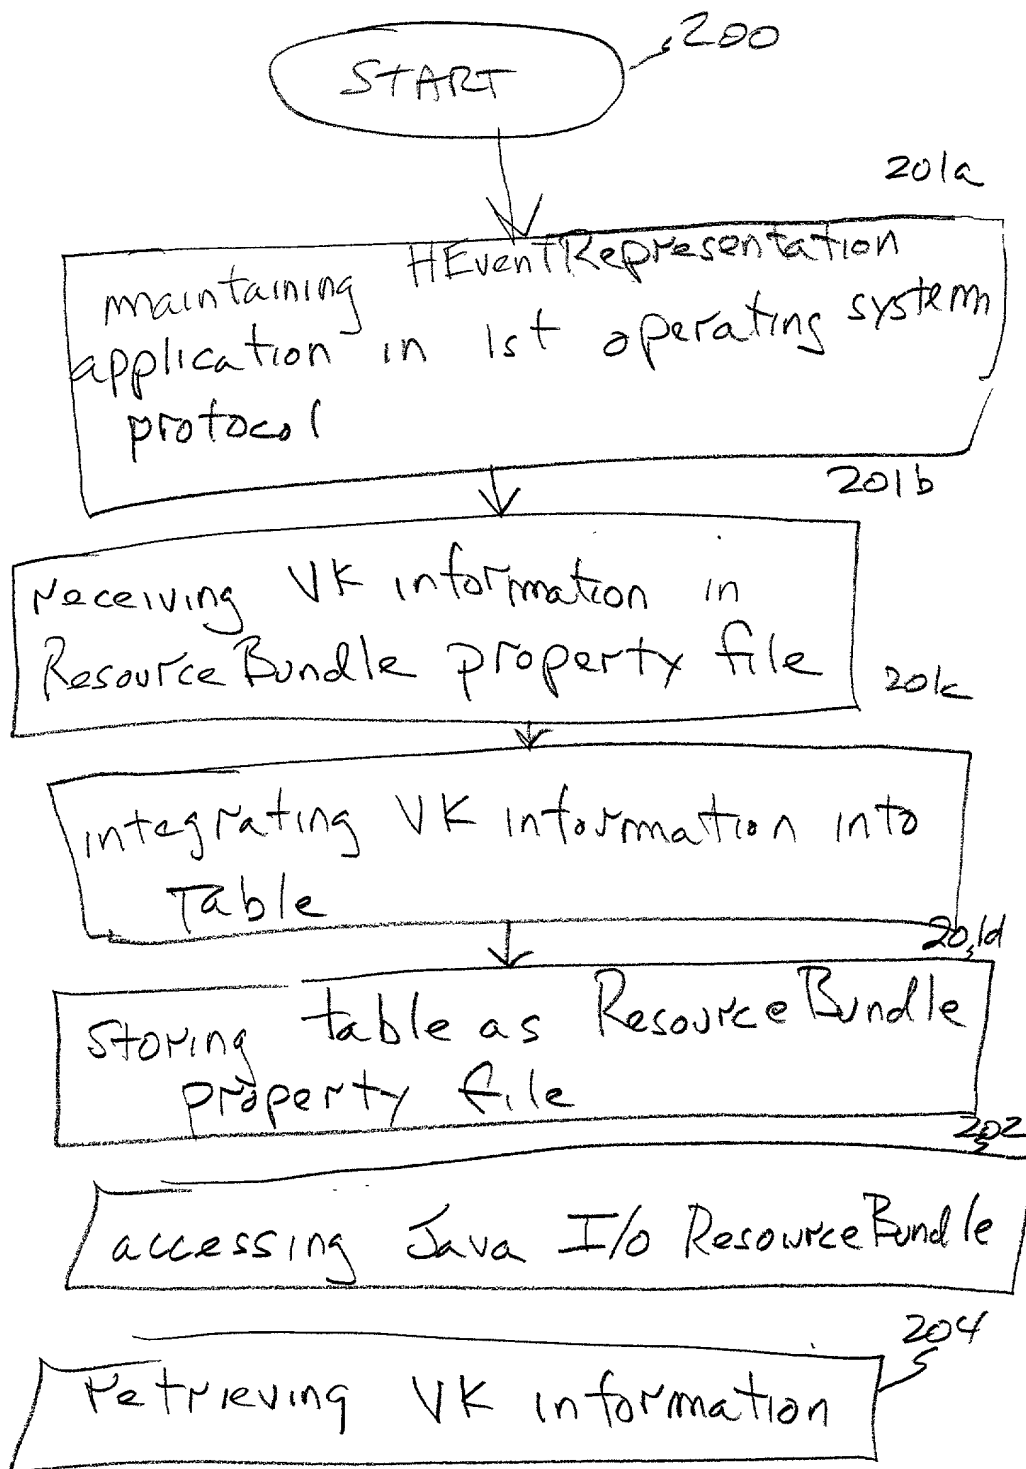 200
START
201a
maintaining HEventRepresentation
application in 1st operating system
protocol
201b
receiving VK information in
ResourceBundle property file
201c
integrating VK information into
Table
201d
storing table as ResourceBundle
property file
202
accessing Java I/O ResourceBundle
204
retrieving VK information